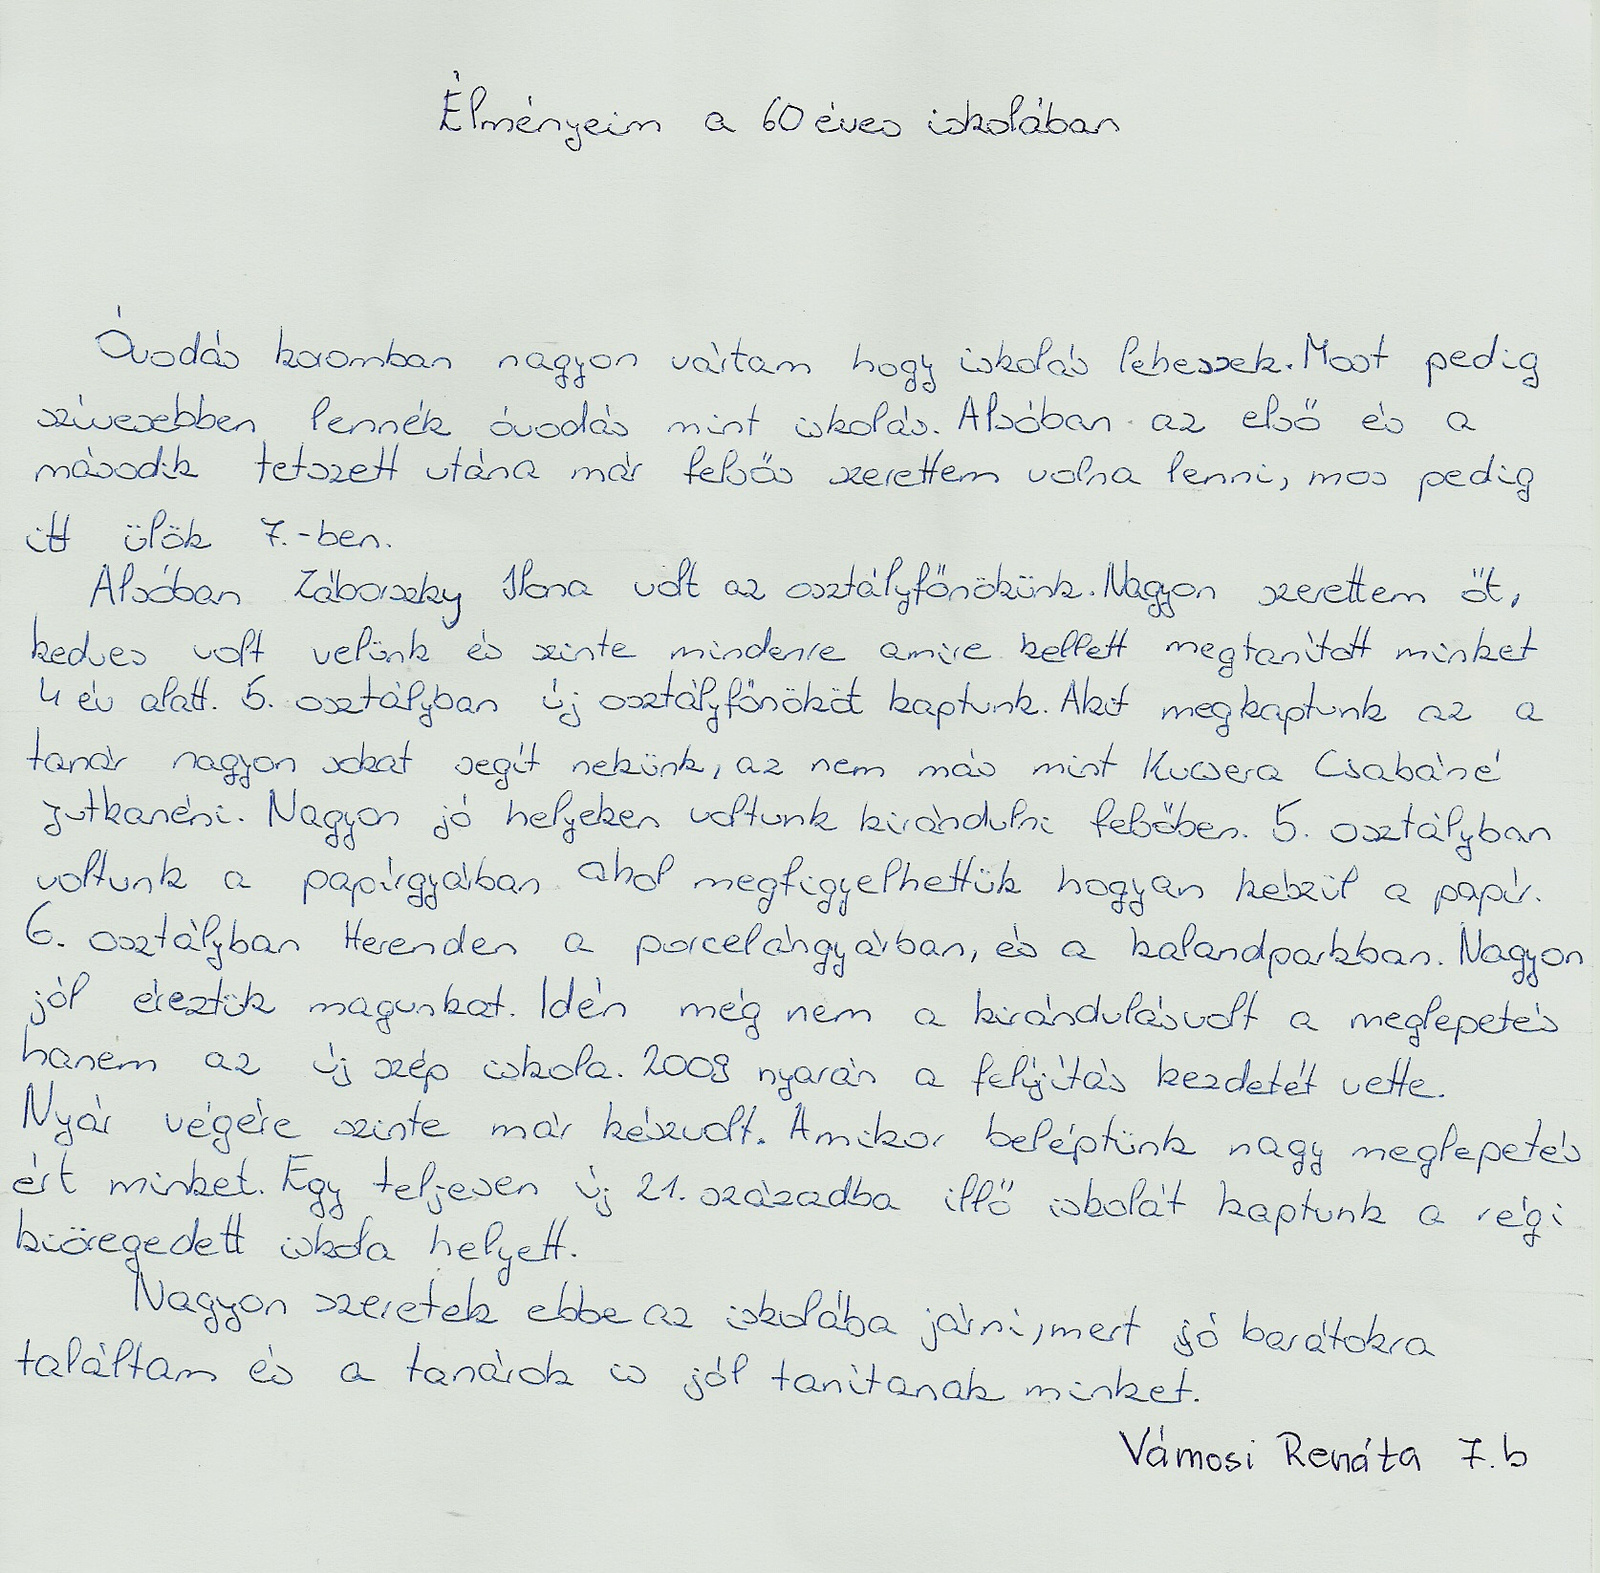 Élményeim a 60 éves iskolában
Óvodás koromban nagyon vártam hogy iskolás lehessek. Most pedig
szívesebben lennék óvodás mint iskolás. Alsóban az első és a
második tetszett utána már felsős szerettem volna lenni, mos pedig
itt ülök 7.-ben.
Alsóban Záborszky Ilona volt az osztályfőnökünk. Nagyon szerettem őt,
kedves volt velünk és szinte mindenre amire kellett megtanított minket
4 év alatt. 5. osztályban új osztályfőnököt kaptunk. Akit megkaptunk az a
tanár nagyon sokat segít nekünk, az nem más mint Kucsera Csabáné
Jutkanéni. Nagyon jó helyeken voltunk kirándulni felsőben. 5. osztályban
voltunk a papírgyárban ahol megfigyelhettük hogyan készül a papír.
6. osztályban Herenden a porcelángyárban, és a kalandparkban. Nagyon
jól éreztük magunkat. Idén még nem a kirándulásvolt a meglepetés
hanem az új szép iskola. 2009 nyarán a felújítás kezdetét vette.
Nyár végére szinte már készvolt. Amikor beléptünk nagy meglepetés
ért minket. Egy teljesen új 21. századba illő iskolát kaptunk a régi
kiöregedett iskola helyett.
Nagyon szeretek ebbe az iskolába járni, mert jó barátokra
találtam és a tanárok is jól tanítanak minket.
Vámosi Renáta 7.b